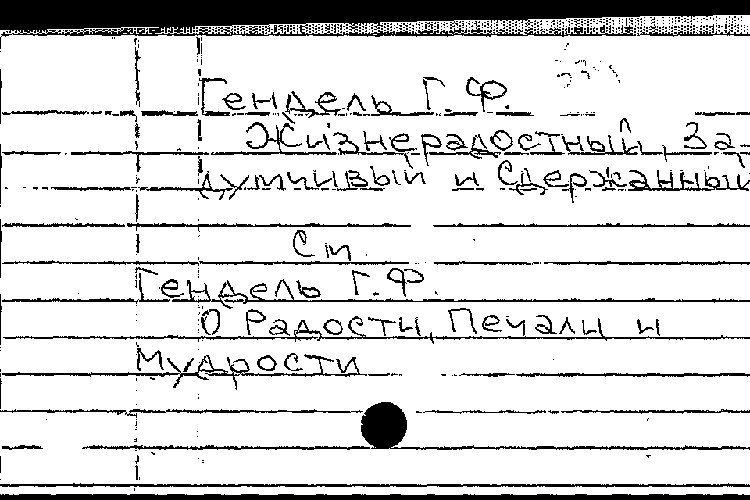 Гендель Г. Ф.
Жизнерадостный, За-
думчивый и Сдержанный
См.
Гендель Г. Ф.
О Радости, Печали и
Мудрости